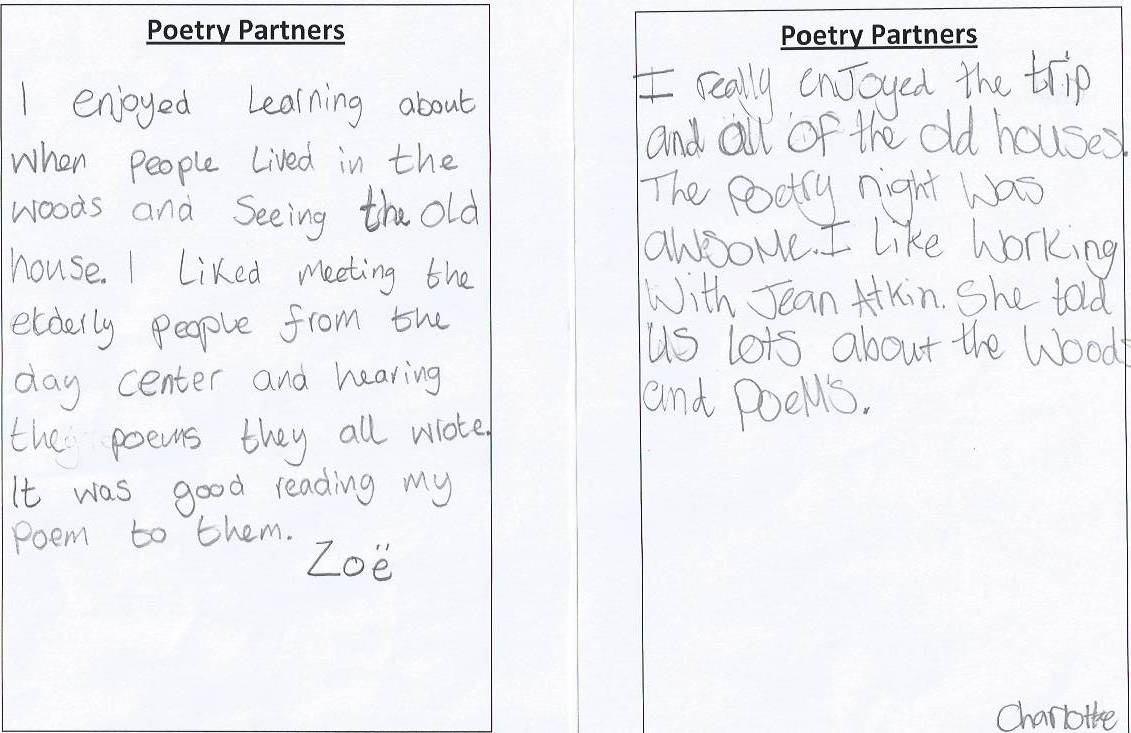 Poetry Partners
I enjoyed Learning about
when people Lived in the
woods and Seeing the old
house. I Liked meeting the
elderly people from the
day center and hearing
the poems they all wrote.
It was good reading my
poem to them.
Zoë
Poetry Partners
I really enJoyed the trip
and all of the old houses.
The Poetry night was
awesome. I Like working
With Jean Atkin. She told
us lots about the Woods
and PoeM's.
Charlotte